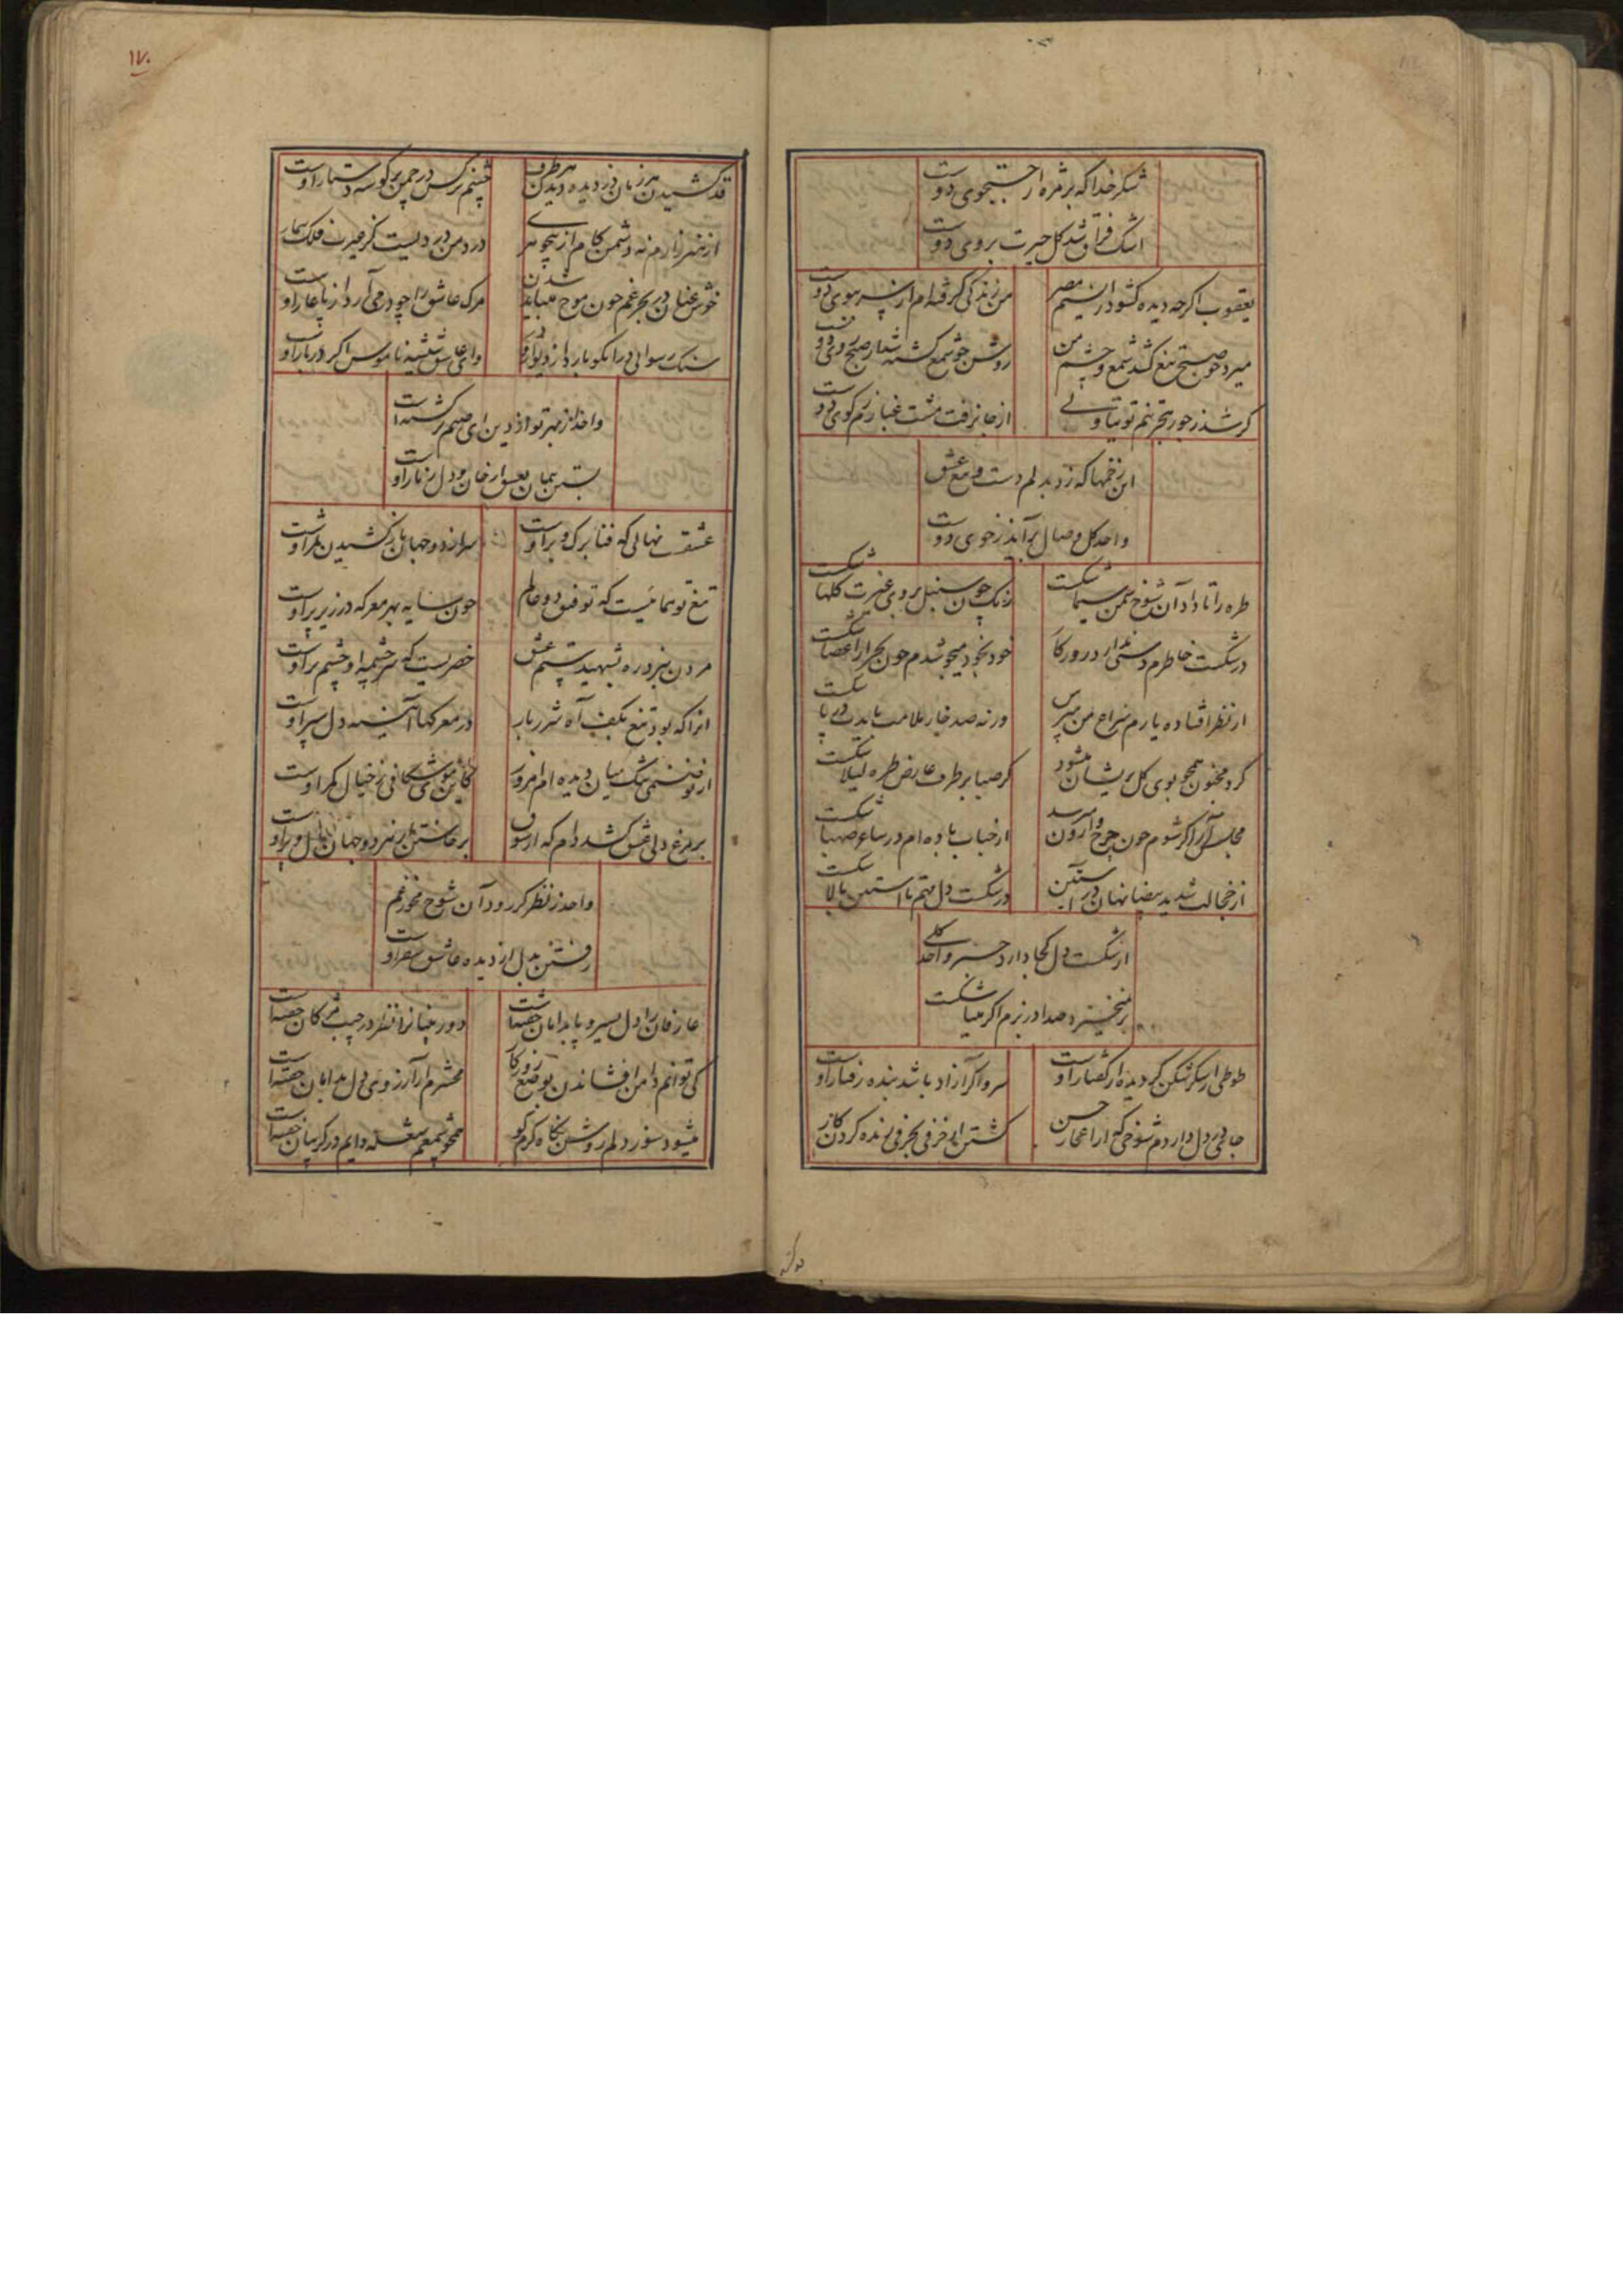 شکر خدا که بر مژه از جستجوی دوست
اشک فراق شد گل حیرت بروی دوست
یعقوب اگرچه دیده گشود از نسیم مصر
من زندگی گرفته ام از بسوی دوست
میرد چو صبح تیغ کشد شمع و چشم من
روشن چو شمع کشته شد از صبح روی دوست
گر شد ز جور
از جا نرفت مشت غبارم ز کوی دوست
این زخمها که زد بدلم دست و تیغ عشق
واحد گل وصال برآید ز جوی دوست
طره را تا داد آن شوخ سمن سیما شکست
رنگ چون سنبل بروی عنبرت گلها شکست
در شکست خاطرم دستی ندارد روزگار
خود بخود میجوشدم چون بحر از اعضا شکست
از نظر افتاده یارم سراغ من مپرس
ورنه صد خار ملامت بایدت در پا شکست
گرد مجنون همچو بوی گل پریشان میشود
گر صبا بر طرف عارض طره لیلا شکست
مجلس آرا گر شوم چون چرخ وارون میرسد
از حباب باده ام در ساغر صهبا شکست
از خجالت شد ید بیضا نهان در آستین
در شکست دل بتم تا آستین بالا شکست
از شکست دل کجا دارد خسرو واحد گلی
بر نمیخیزد صدا در بزم اگر مینا شکست
طوطی از شکر شکن گردیده از گفتار اوست
سرو اگر آزاد باشد بنده رفتار اوست
جا در دل دارم شوخی که از اعجاز حسن
کشتن از حرفی بحرفی زنده کردن کار
قد کشیدن هر زمان دزدیده دیدن هر طرف
چشم نرگس در چمن بر گوشه دستار اوست
از هنر زارم نه دشمن کام از هیچو
درد من دردیست کز حیرت فلک بیمار
خوش عنان در بحر غم چون موج میباید شدن
مرگ عاشق را چو در می آرد از پا عار اوست
سنگ رسوائی در آنکو بارد از دیوار و در
وای عاشق شیشه ناموس اگر دربار اوست
واحد از مهر تو از دین ای صنم برگشته است
بستن پیمان بعشق از جان و دل زنار اوست
عشقت نهالی که فنا برگ و بر اوست
سر از دو جهان باز کشیدن ثمر اوست
تیغ تو همائیست که توفیق دو عالم
چون سایه بهر معرکه در زیر پر اوست
مردن نبرد ره بشهید ستم عشق
خضریست که سرچشمه او چشم تر اوست
آنرا که بود تیغ بکف آه شرربار
در معرکها آینه دل سپر اوست
از تو
کاین موشکافی ز خیال کمر اوست
بر مرغ دلی عشق کشد دام که از شوق
برخاستن از سر دو جهان بال و پر اوست
واحد ز نظر گر رود آن شوخ مخور غم
رفتن بدل از دیده عاشق سفر اوست
عارفان را دل بسیر و پا بدامان خفته است
دوربینانرا نظر در جیب مژگان خفته است
کی توانم دامن افشاندن بوضع روزگار
محشرم از آرزوی دل بدامان خفته است
میشود سوز دلم روشن نگاه گرم کو
همچو شمعم شعله دایم در گریبان خفته است
۱۷۰